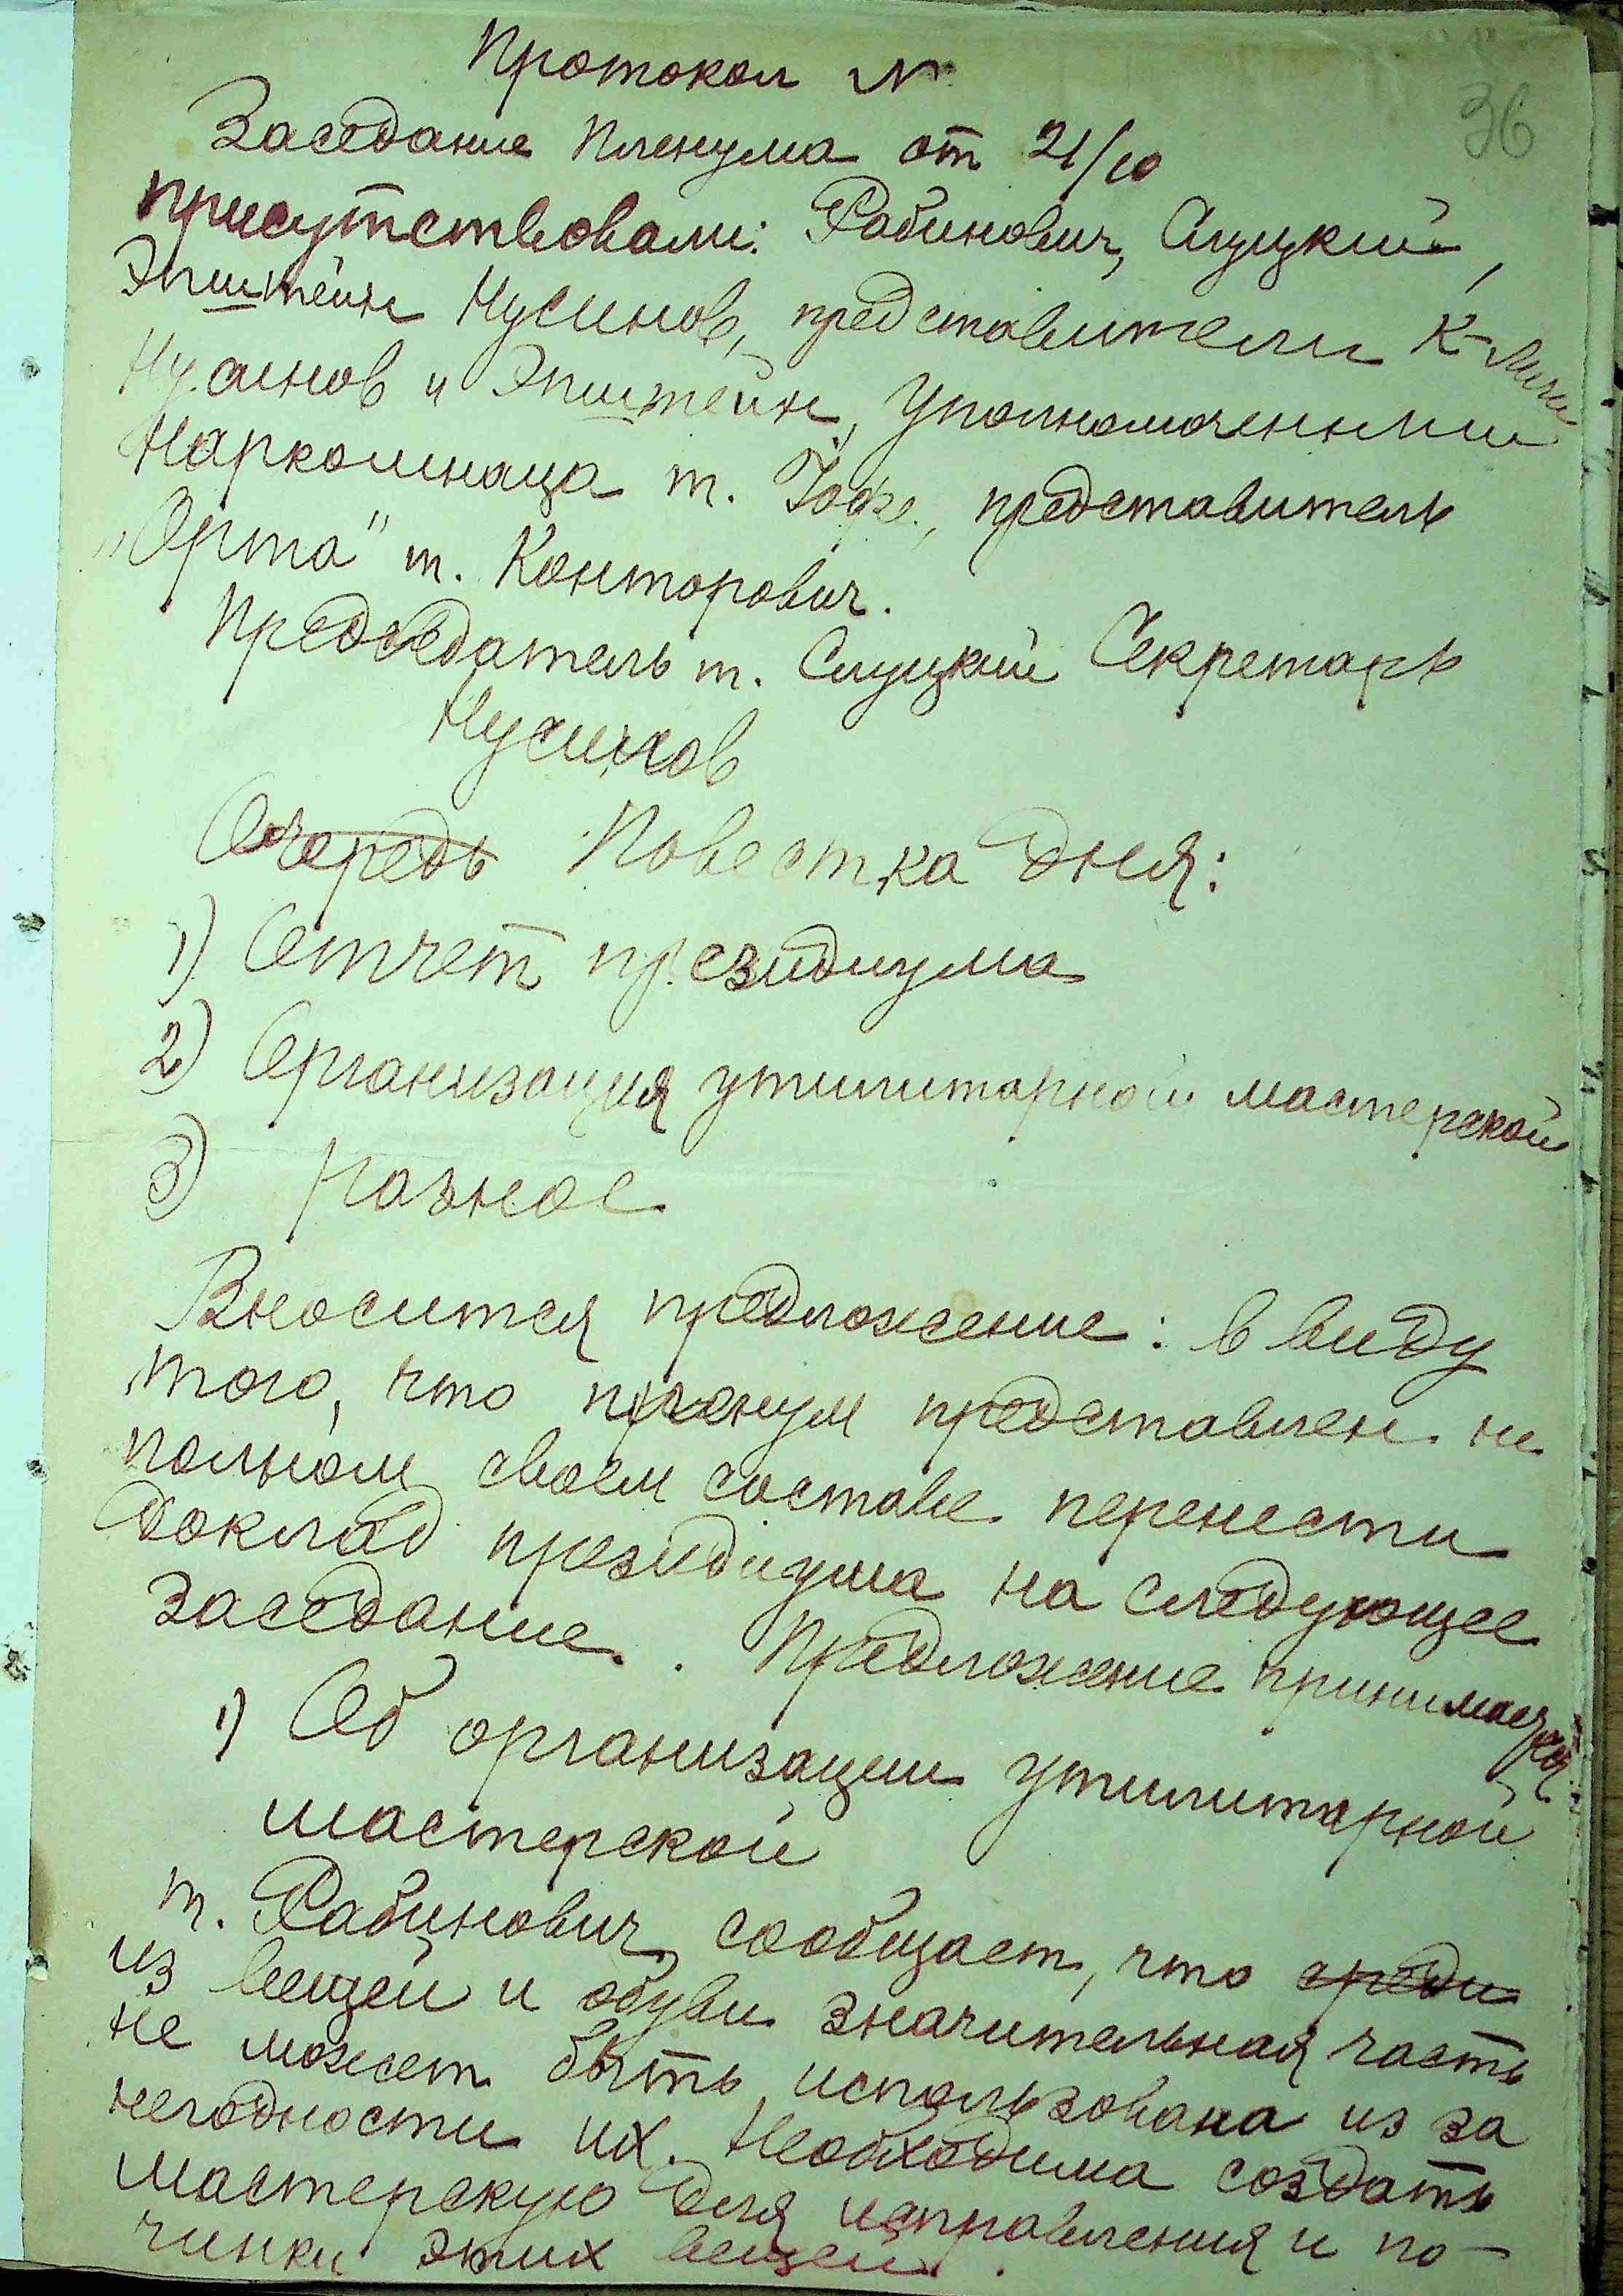 36
Протокол №
Заседание Пленума от 21/10
присутствовали: Рабинович, Слуцкий,
Эпштейн Нусинов, представители К-
Нусинов и Эпштейн, Уполномоченный
Наркомнаца т. Гофе., представитель
"Орта" т. Конторович.
Председатель т. Слуцкий Секретарь
Нусинов
Очередь Повестка дня:
1) Отчет президиума
2) Организация утилитарной мастерской
3) Разное
Вносится предложение: в виду
того, что пленум представлен не
полном своем составе перенести
доклад президиума на следующее
заседание. Предложение принимается
1) Об организации утилитарной
мастерской
т. Рабинович сообщает, что среди
из вещей и обуви значительная часть
не может быть использована из за
негодности их. Необходима создать
мастерскую для исправления и по-
чинки этих вещей.